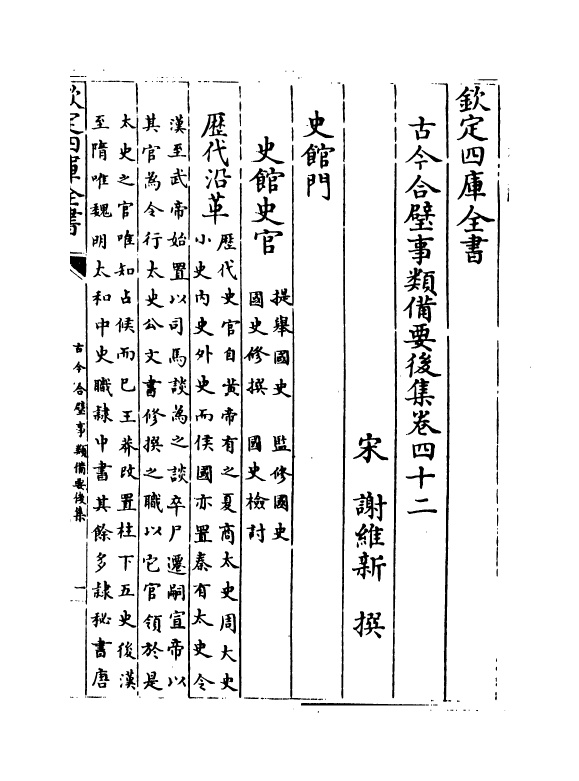 欽定四庫全書
古今合璧事類備要後集卷四十二
宋 謝維新 撰
史館門
史館史官
提舉國史 監修國史
國史修撰 國史檢討
歷代沿革
歷代史官自黄帝有之夏商太史周大史
小史内史外史而侯國亦置秦有太史令
漢至武帝始置以司馬談為之談卒尸遷嗣宣帝以
其官為令行太史公文書修撰之職以它官領於是
太史之官唯知占候而已王莽改置柱下五史後漢
至隋唯魏明太和中史職隷中書其餘多隷秘書唐
欽定四庫全書
古今合璧事類備要後集
一